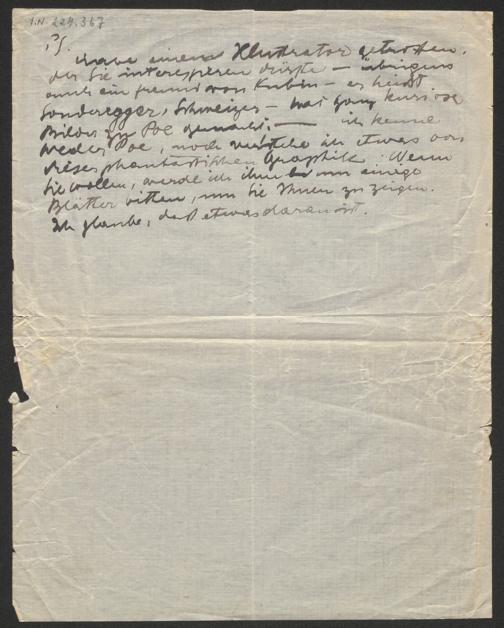 I.N. 229.367
PS.
habe einen Illustrator getroffen,
der Sie interessieren dürfte – übrigens
auch ein Freund von Kubin – er heisst
Sonderegger, Schweizer – hat ganz kuriose
Bilder zu Poe gemacht. — ich kenne
weder Poe, noch verstehe ich etwas von
dieser phantastischen Graphik. Wenn
Sie wollen, werde ich ihn um einige
Blätter bitten, um sie Ihnen zu zeigen.
Ich glaube, daß etwas daran ist.